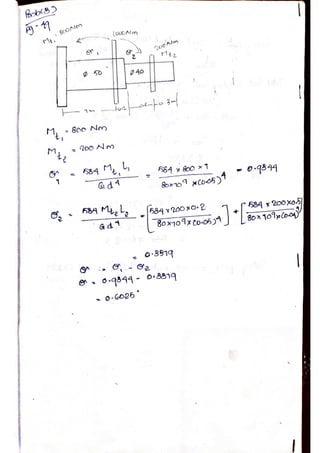 Prob(3)
Pg-49
Mt, 800Nm
1000Nm
200Nm
θ1
θ2
Mt2
ø 50
ø 40
1m
0.3m
Mt1 = 800 Nm
Mt2 = 200 Nm
θ1 = 584 Mt1 l1 / G d^4 = 584 x 800 x 1 / 80x10^9 x (0.05)^4 = 0.9344
θ2 = 584 Mt2 l2 / G d^4 = [584 x 200 x 0.2 / 80x10^9 x (0.05)^4] + [584 x 200 x 0.3 / 80x10^9 x (0.04)^4]
= 0.3319
θ = θ1 - θ2
θ = 0.9344 - 0.3319
= 0.6025°